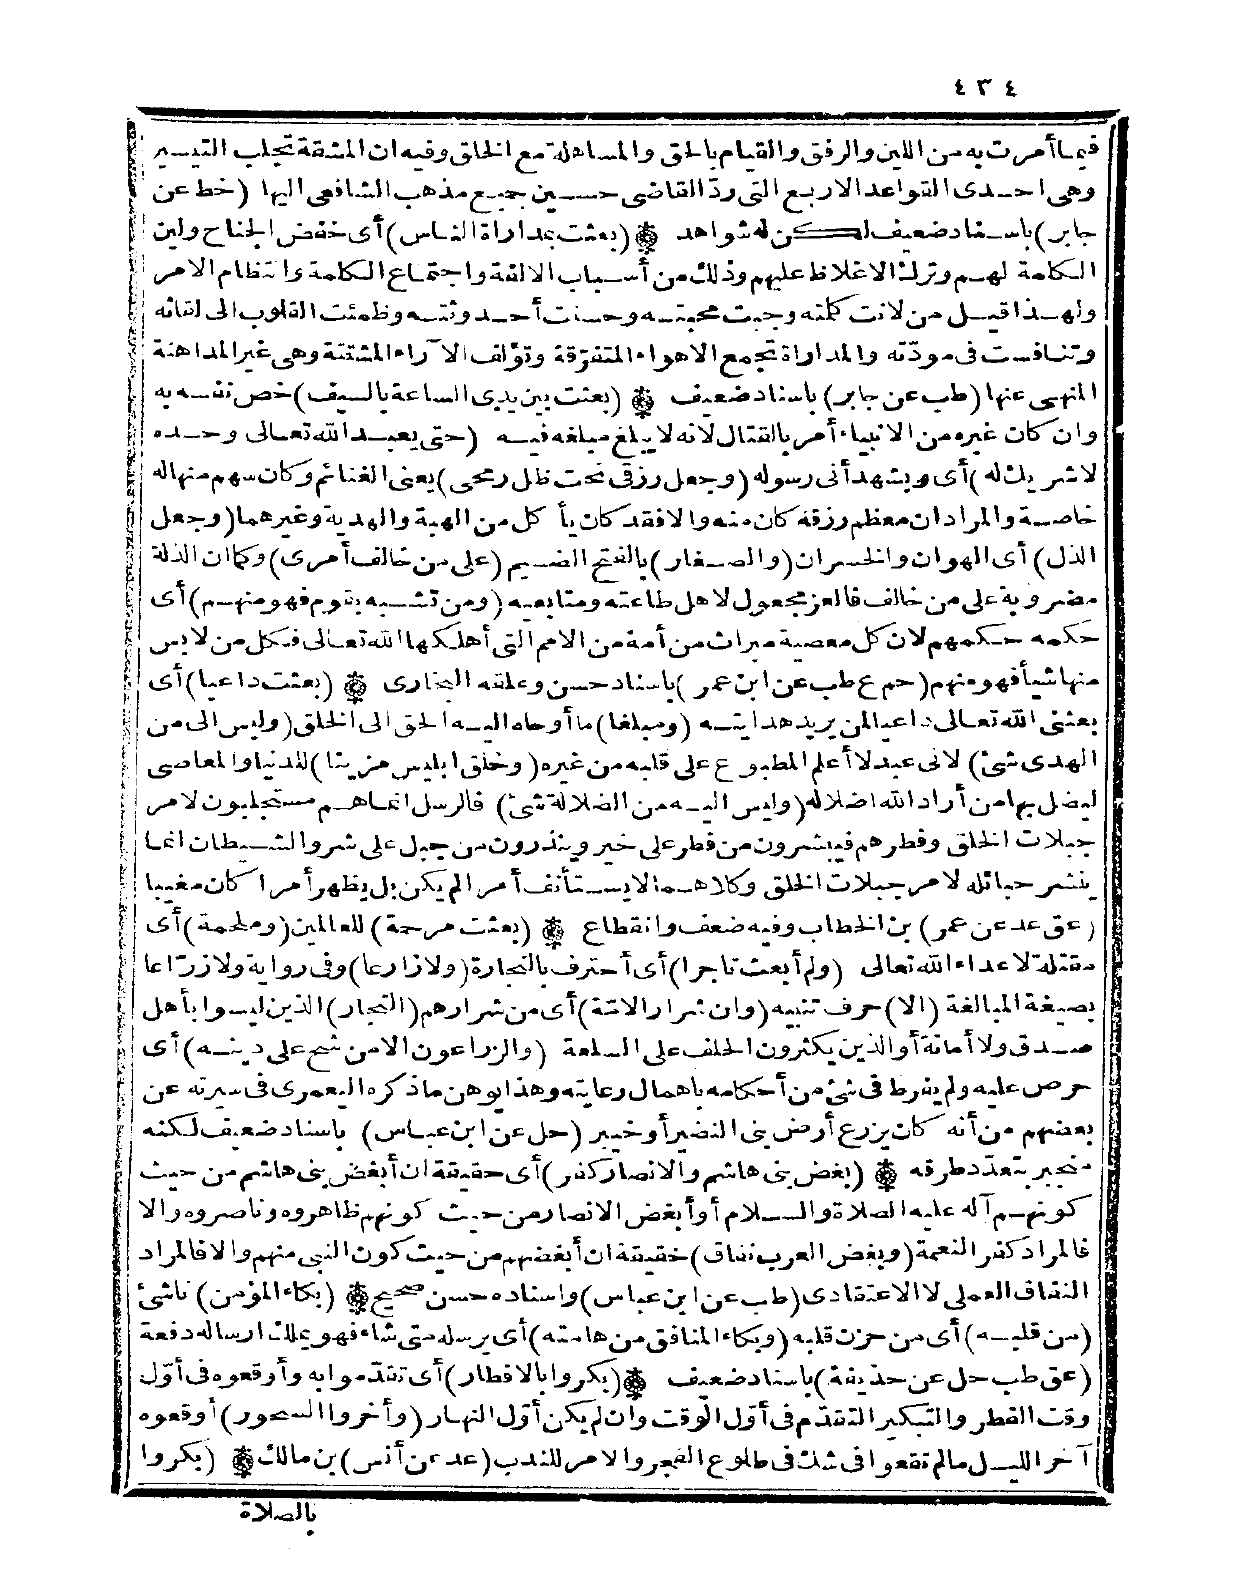 ٤٣٤
فيما أمرت به من اللين والرفق والقيام بالحق والمساهلة مع الخلق وفيه ان المشقة تجلب التيسير
وهى احدى القواعد الاربع التى ردّ القاضى حسين جميع مذهب الشافعى اليها (خط عن
جابر) باسناد ضعيف لكن له شواهد ۞ (بعثت بمداراة الناس) أى خفض الجناح ولين
الكلمة لهم وترك الاغلاظ عليهم وذلك من أسباب الالفة واجتماع الكلمة وانتظام الامر
ولهذا قيل من لانت كلمته وجبت محبته وحسنت أحدوثته وظمئت القلوب الى لقائه
وتنافست فى مودّته والمداراة تجمع الاهواء المتفرّقة وتؤلف الآراء المشتتة وهى غير المداهنة
المنهى عنها (طب عن جابر) باسناد ضعيف ۞ (بعثت بين يدى الساعة بالسيف) خص نفسه به
وان كان غيره من الانبياء أمر بالقتال لانه لا يبلغ مبلغه فيه (حتى يعبد الله تعالى وحده
لا شريك له) أى ويشهد أنى رسوله (وجعل رزقى تحت ظل رمحى) يعنى الغنائم وكان سهم منها له
خاصة والمراد ان معظم رزقه كان منه والا فقد كان يأكل من الهبة والهدية وغيرهما (وجعل
الذل) أى الهوان والخسران (والصغار) بالفتح الضيم (على من خالف أمرى) وكما ان الذلة
مضروبة على من خالف فالعز مجعول لاهل طاعته ومتابعيه (ومن تشبه بقوم فهو منهم) أى
حكمه حكمهم لان كل معصية ميراث من أمة من الامم التى أهلكها الله تعالى فكل من لابس
منها شيأ فهو منهم (حم ع طب عن ابن عمر) باسناد حسن وعلقه البخارى ۞ (بعثت داعيا) أى
بعثنى الله تعالى داعيا لمن يريد هدايته (ومبلغا) ما أوحاه اليه الحق الى الخلق (وليس الى من
الهدى شئ) لانى عبد لا أعلم المطبوع على قلبه من غيره (وخلق ابليس مزينا) للدنيا والمعاصى
ليضل بها من أراد الله اضلاله (وليس اليه من الضلالة شئ) فالرسل انما هم مستجلبون لامر
جبلات الخلق وفطرهم فيبشرون من فطر على خير وينذرون من جبل على شر والشيطان انما
ينشر حبائله لامر جبلات الخلق وكلاهما لا يستأنف أمرا لم يكن بل يظهر أمرا كان مغيبا
(عق عد عن عمر) بن الخطاب وفيه ضعف وانقطاع ۞ (بعثت مرحمة) للعالمين (وملحمة) أى
مقتلة لاعداء الله تعالى (ولم أبعث تاجرا) أى أحترف بالتجارة (ولا زارعا) وفى رواية ولا زرّاعا
بصيغة المبالغة (الا) حرف تنبيه (وان شرار الامّة) أى من شرارهم (التجار) الذين ليسوا بأهل
صدق ولا أمانة أو الذين يكثرون الحلف على السلعة (والزراعون الا من شح على دينه) أى
حرص عليه ولم يفرط فى شئ من أحكامه باهمال رعايته وهذا يوهن ما ذكره اليعمرى فى سيرته عن
بعضهم من أنه كان يزرع أرض بنى النضير أو خيبر (حل عن ابن عباس) باسناد ضعيف لكنه
منجبر بتعدّد طرقه ۞ (بغض بنى هاشم والانصار كفر) أى حقيقة ان أبغض بنى هاشم من حيث
كونهم آله عليه الصلاة والسلام أو أبغض الانصار من حيث كونهم ظاهروه وناصروه والا
فالمراد كفر النعمة (وبغض العرب نفاق) حقيقة ان أبغضهم من حيث كون النبى منهم والا فالمراد
النفاق العملى لا الاعتقادى (طب عن ابن عباس) واسناده حسن صحيح ۞ (بكاء المؤمن) ناشئ
(من قلبه) أى من حزن قلبه (وبكاء المنافق من هامته) أى يرسله متى شاء فهو يملك ارساله دفعة
(عق طب حل عن حذيفة) باسناد ضعيف ۞ (بكروا بالافطار) أى تقدّموا به وأوقعوه فى أوّل
وقت الفطر والتبكير التقدّم فى أوّل الوقت وان لم يكن أوّل النهار (وأخروا السحور) أوقعوه
آخر الليل ما لم تقعوا فى شك فى طلوع الفجر والامر للندب (عد عن أنس) بن مالك ۞ (بكروا
بالصلاة